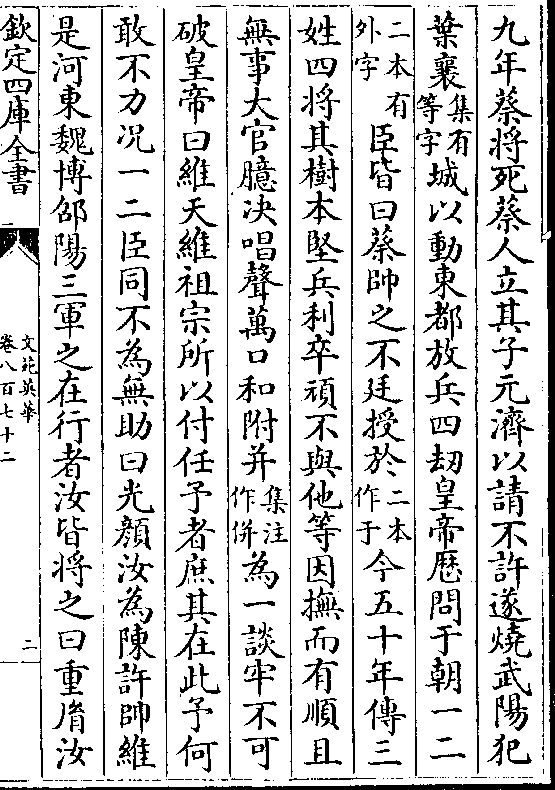 九年蔡將死蔡人立其子元濟以請不許遂燒武陽犯
葉襄集有等字城以動東都放兵四刼皇帝歴問于朝一二
二本有外字臣皆曰蔡帥之不廷授於二本作于今五十年傳三
姓四將其樹本堅兵利卒頑不與他等因撫而有順且
無事大官臆决唱聲萬口和附并集注作併為一談牢不可
破皇帝曰維天維祖宗所以付任予者庶其在此予何
敢不力况一二臣同不為無助曰光顔汝為陳許帥維
是河東魏博郃陽三軍之在行者汝皆將之曰重脣汝
欽定四庫全書
文苑英華
卷八百七十二
二